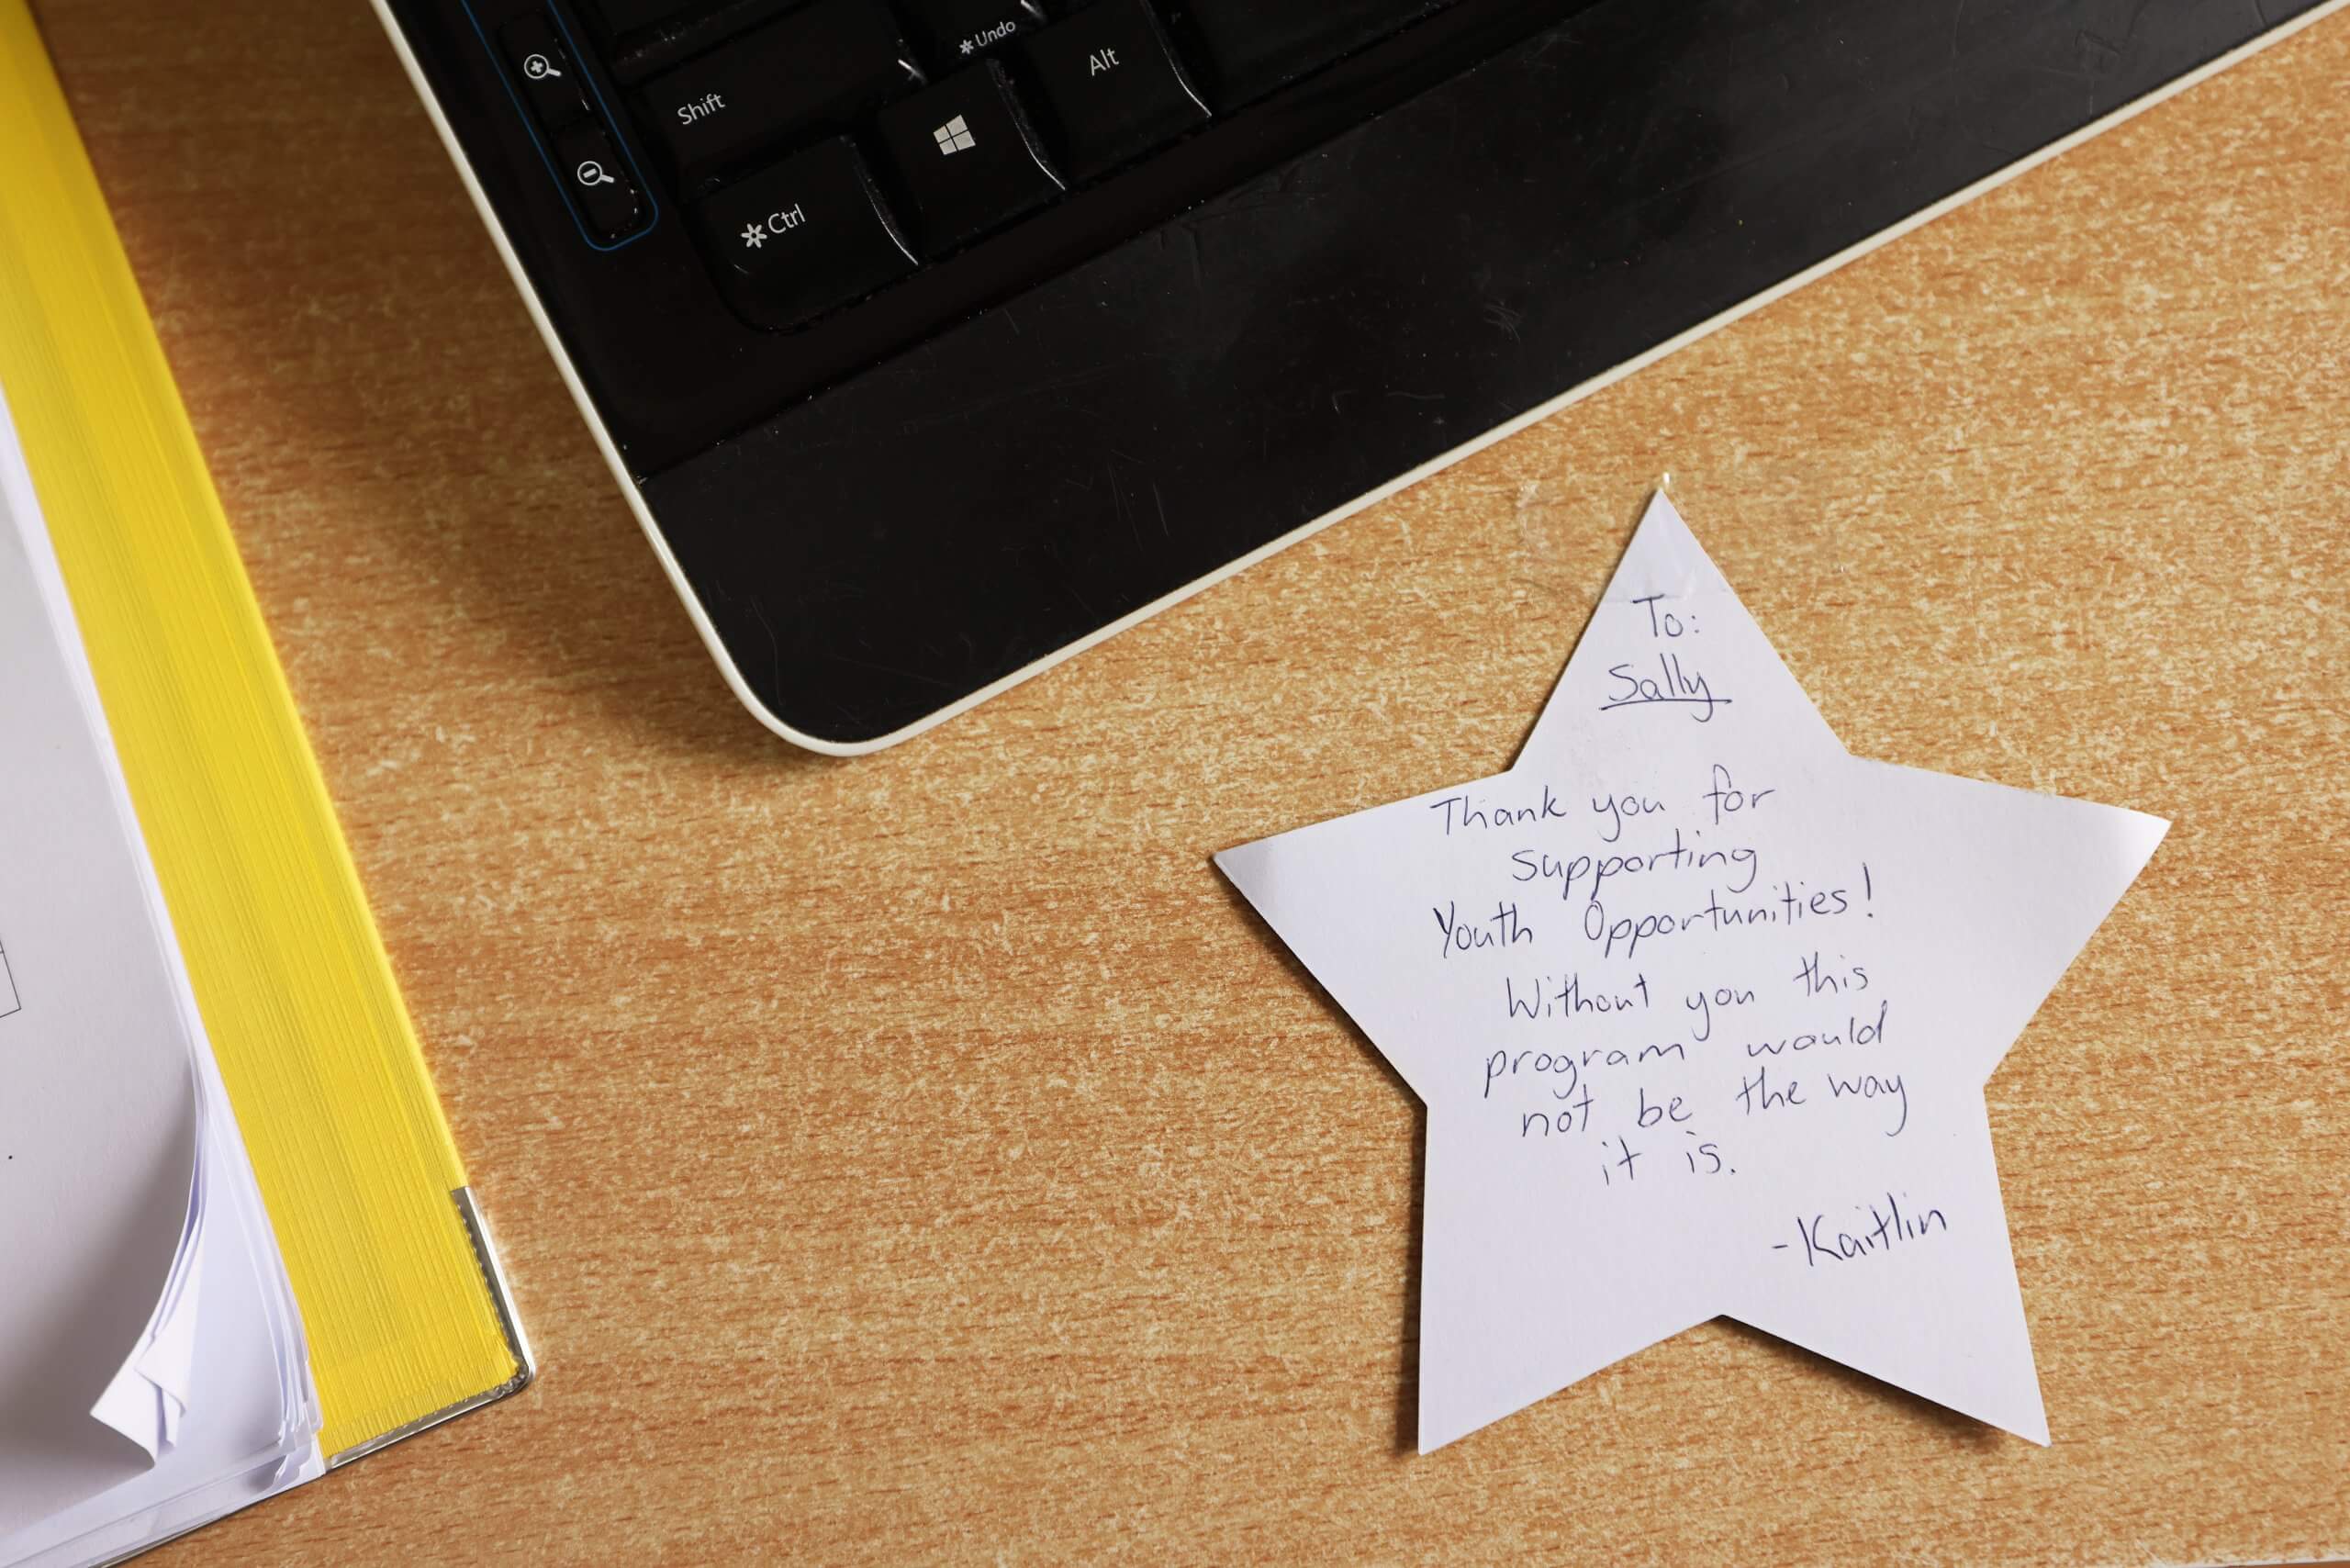 * Undo
Alt
Shift
* Ctrl
To:
Sally
Thank you for
supporting
Youth Opportunities!
Without you this
program would
not be the way
it is.
-Kaitlin